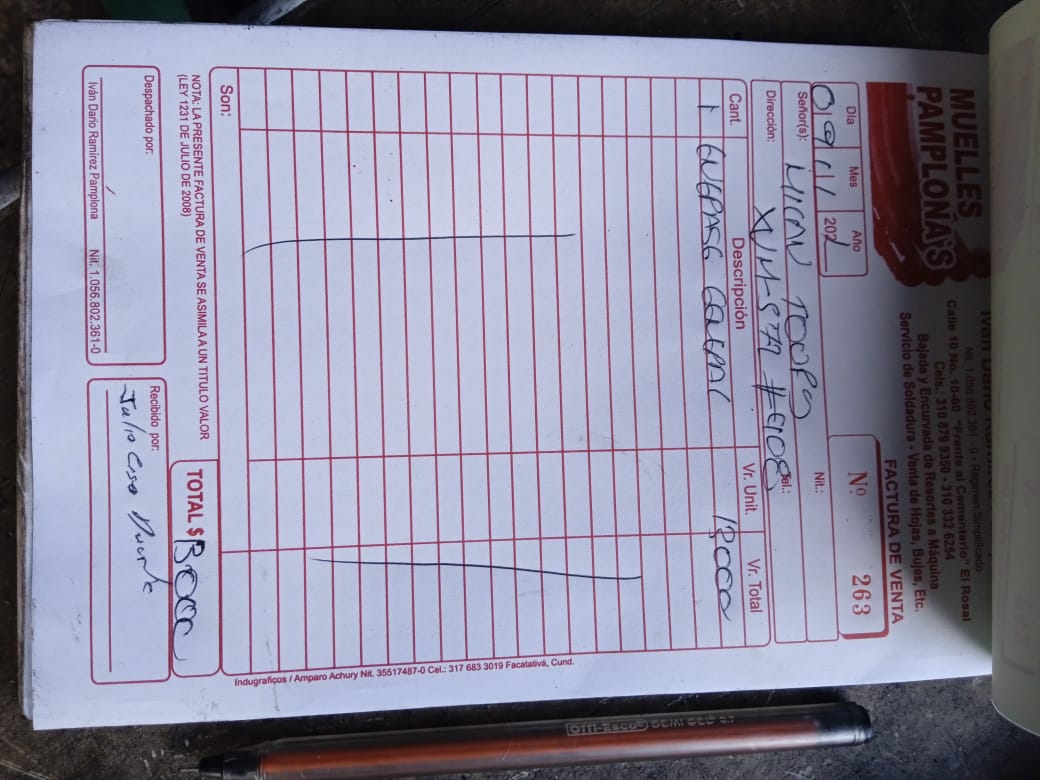 MUELLES
PAMPLONA'S
Nit. 1.056.802.361 - 0 - Régimen Simplificado
Calle 10 No. 10-60 "Frente al Cementerio" El Rosal
Cels.: 310 879 9350 - 310 332 6254
Bajada y Encurvada de Resortes a Máquina
Servicio de Soldadura - Venta de Hojas, Bujes, Etc.
FACTURA DE VENTA
Nº 263
Día Mes Año
09 11 202
Señor(s): Nit.:
Dirección: XVM-577 Tel.:
Cant. Descripción Vr. Unit. Vr. Total
1 13000
Son:
TOTAL $ 13000
NOTA: LA PRESENTE FACTURA DE VENTA SE ASIMILA A UN TITULO VALOR
(LEY 1231 DE JULIO DE 2008)
Despachado por:
Iván Darío Ramírez Pamplona Nit. 1.056.802.361-0
Recibido por:
Julio
Indugraficos / Amparo Achury Nit. 35517487-0 Cel.: 317 683 3019 Facatativá, Cund.
Offi-Esco SEMI GEL 0.7